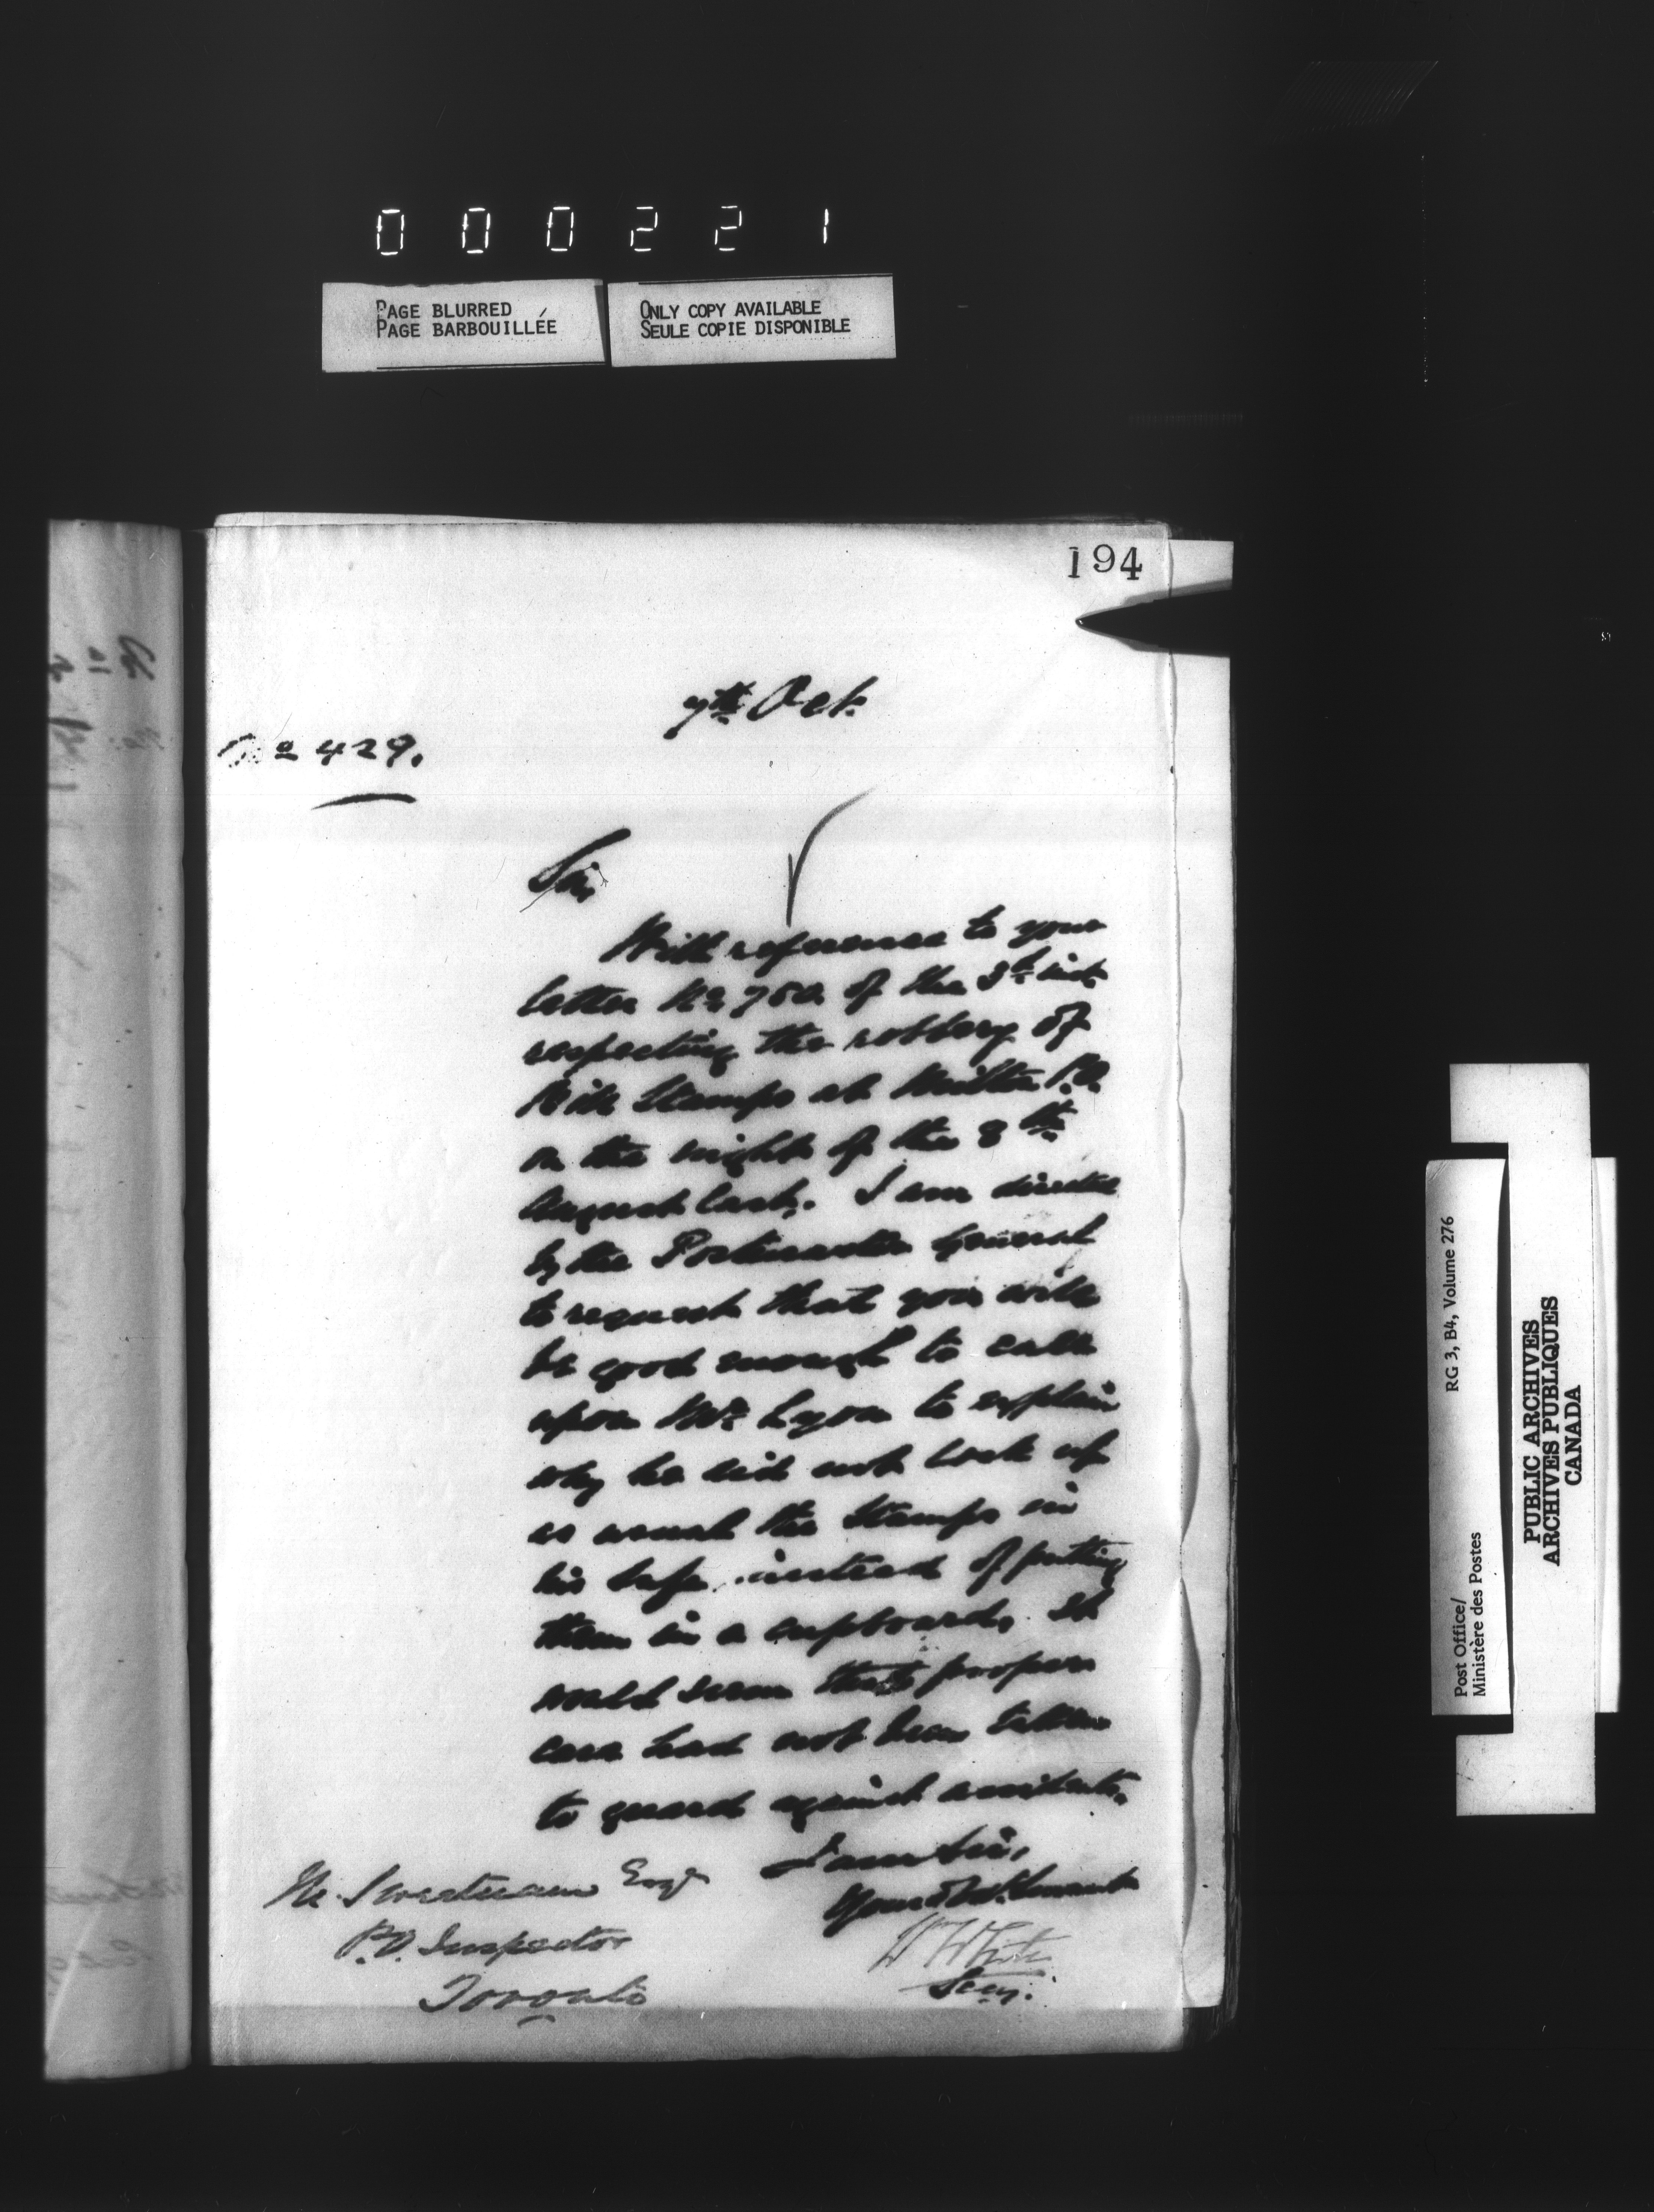 000221
PAGE BLURRED
PAGE BARBOUILLÉE
ONLY COPY AVAILABLE
SEULE COPIE DISPONIBLE
194
7th Oct.
No 429.
Sir,
With reference to your
letter No 750 of the 3d inst
respecting the robbery of
Bill Stamps at Milton P.O.
on the night of the 8th
August last. I am directed
by the Postmaster General
to request that you will
be good enough to call
upon Mr Lyon to explain
why he did not lock up
as usual the Stamps in
his safe instead of putting
them in a cupboard. It
would seem that proper
care had not been taken
to guard against accidents.
I am Sir,
Your Obt. Servant
W White
Secy.
M. Sweetnam Esqr
P.O. Inspector
Toronto
Post Office/
Ministère des Postes
RG 3, B4, Volume 276
PUBLIC ARCHIVES
ARCHIVES PUBLIQUES
CANADA